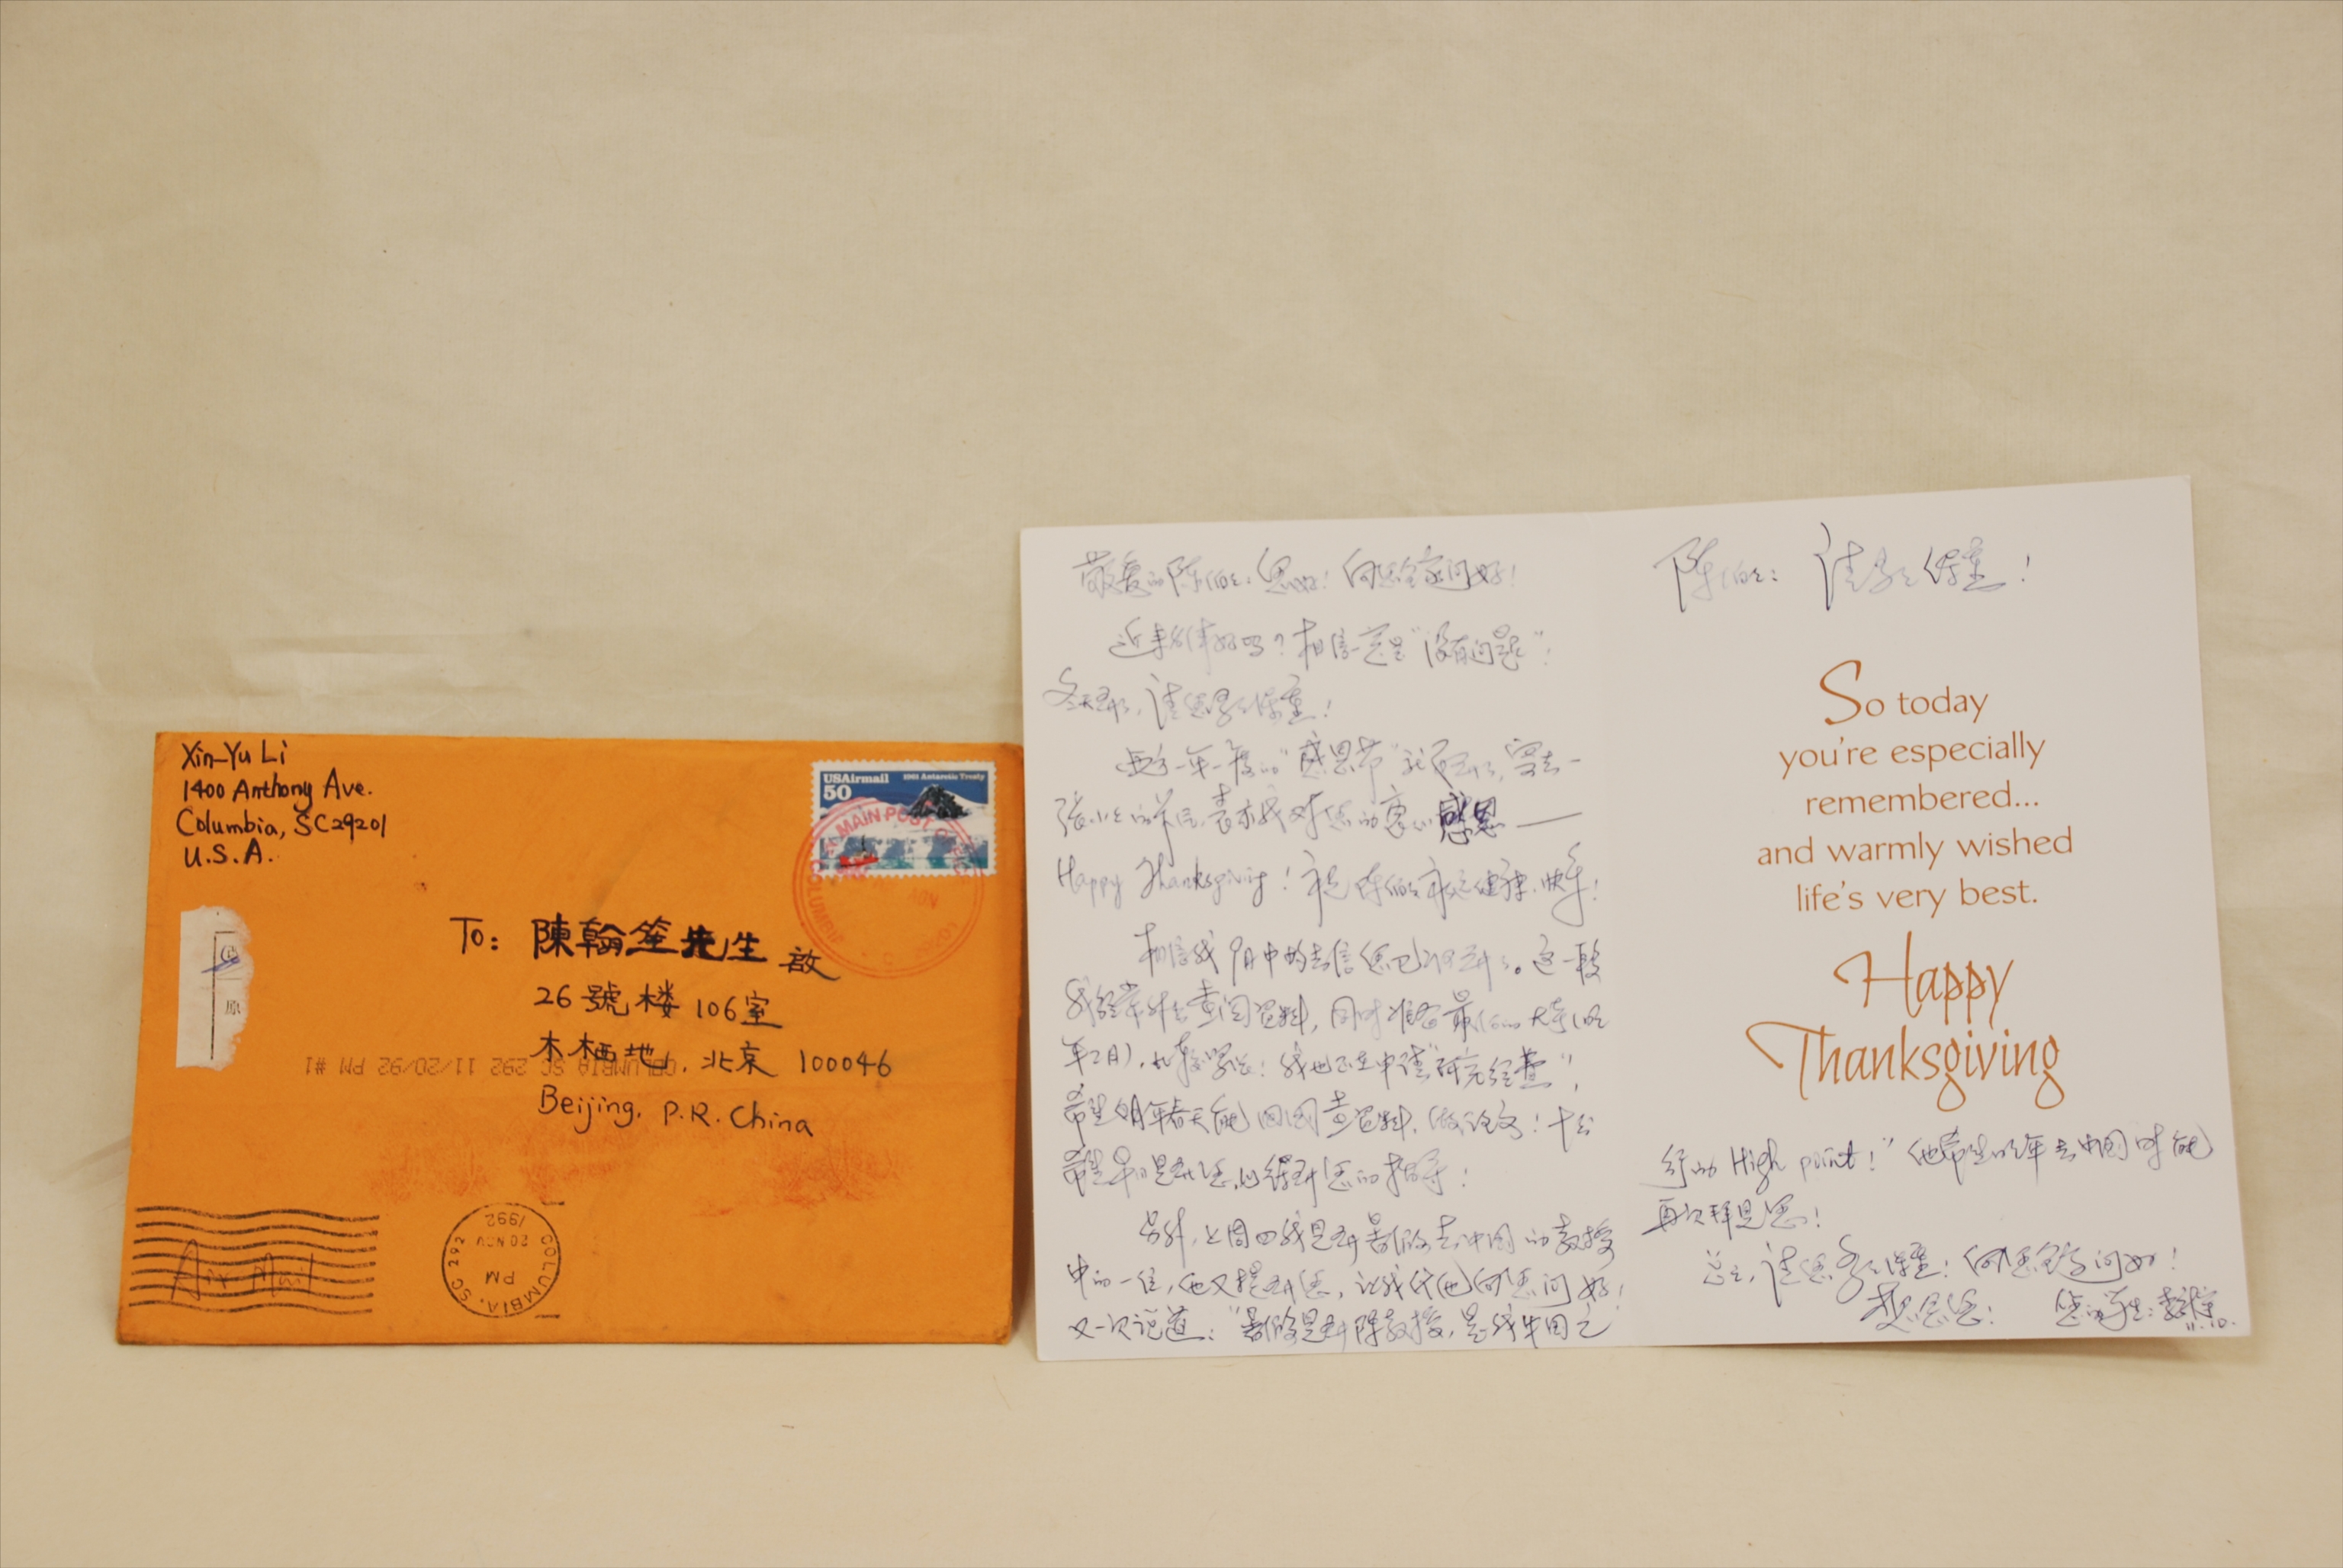 Xin-Yu Li
1400 Anthony Ave.
Columbia, SC 29201
U.S.A.
USAirmail
50
1991 Antarctic Treaty
MAIN POST
COLUMBIA
NOV
To: 陳翰笙先生 啟
26號楼106室
木樨地, 北京 100046
Beijing, P.R. China
COLUMBIA SC 292 11/20/92 PM #1
原
Air Mail
COLUMBIA, SC 292
PM
20 NOV
1992
敬爱的陈伯伯: 您好! 向您全家问好!
近来身体好吗? 相信一定是"没有问题"!
冬天到了, 请您多多保重!
一年一度的"感恩节"就要到了, 寄去一
张小小的, 表示我对您的衷心感恩——
Happy Thanksgiving! 祝陈伯伯永远健康、快乐!
相信我9月中的去信您已收到了。这一段
我经常外出查阅资料, 同时准备最后的大考(明
年2月), 比较紧张! 我也正在申请"研究经费",
希望明年春天能回国查资料、做论文! 十分
希望早日见到您, 以得到您的指导!
另外, 上周四我见到暑假去中国的教授
中的一位, 他又提到您, 让我代他向您问好!
又一次说道: "暑假见到陈教授, 是我中国之
陈伯伯: 请多多保重!
So today
you're especially
remembered...
and warmly wished
life's very best.
Happy
Thanksgiving
行的 High point!" 他希望明年去中国时能
再次拜见您!
总之, 请您多多保重! 向您全家问好!
您的学生: 李
11.10.